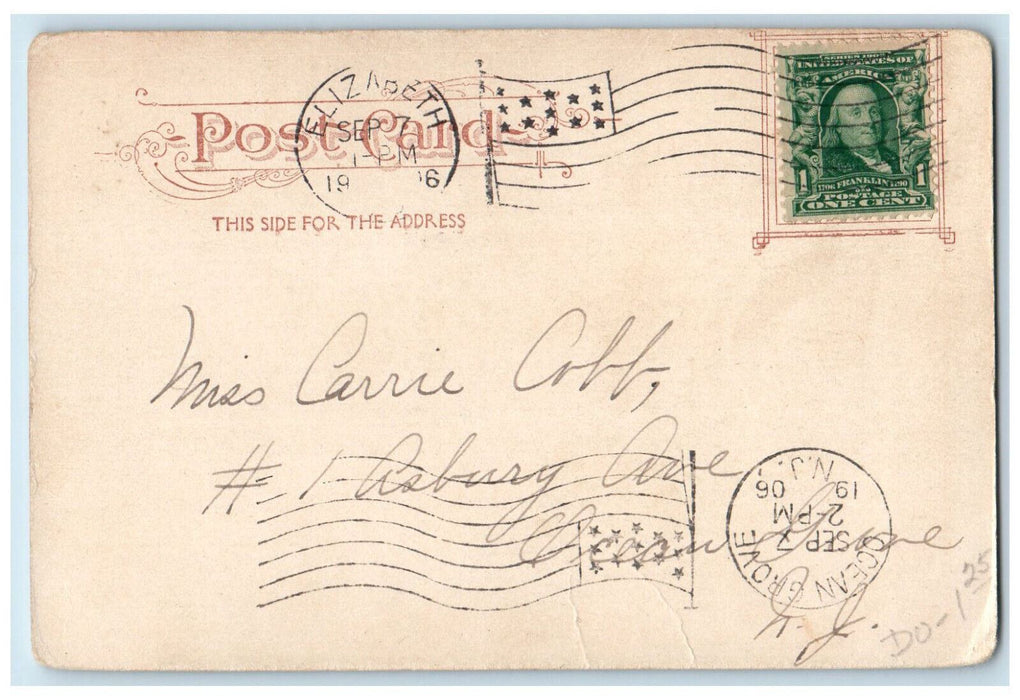 Post Card
THIS SIDE FOR THE ADDRESS
ELIZABETH
SEP 7
1-PM
19 6
SERIES 1902
UNITED STATES OF
AMERICA
1 1
1706 FRANKLIN 1790
POSTAGE
ONE CENT
Miss Carrie Cobb,
# 1 Asbury Ave
Ocean Grove
N. J.
OCEAN GROVE
SEP 7
2-PM
19 06
N.J.
DO-1 25